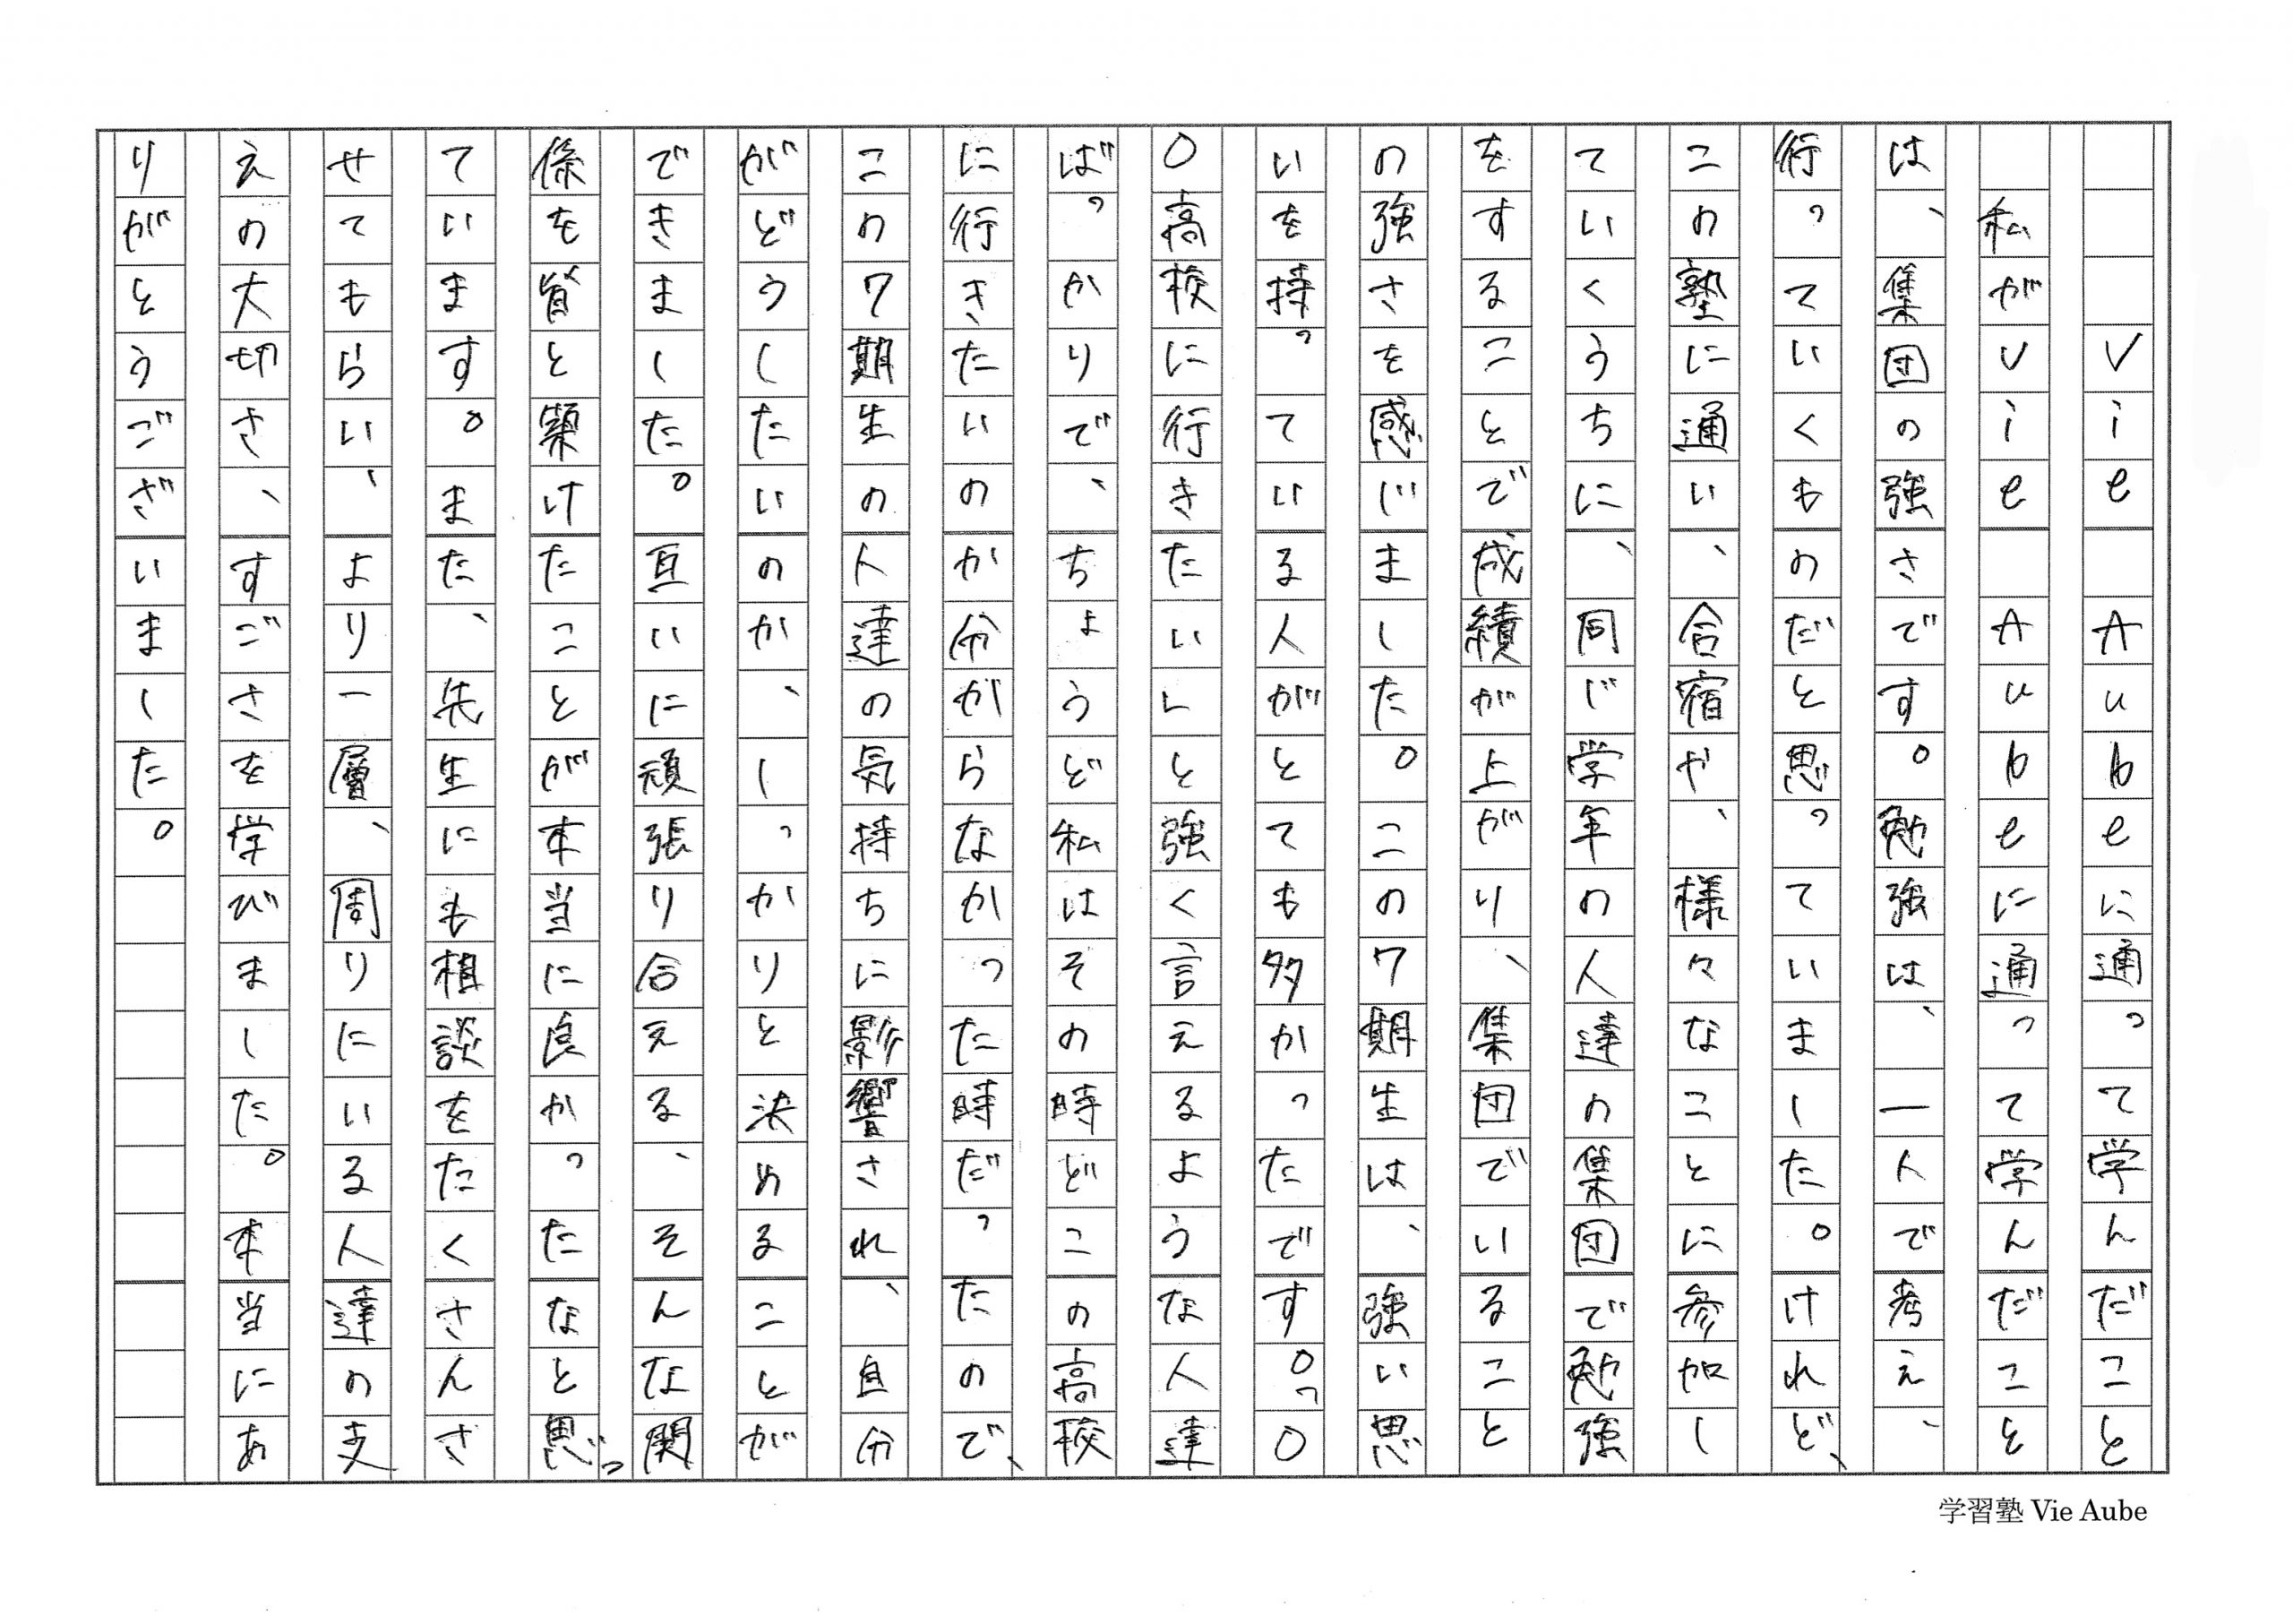 Vie Aubeに通って学んだこと
私がVie Aubeに通って学んだこと
は、集団の強さです。勉強は、一人で考え、
行っていくものだと思っていました。けれど、
この塾に通い、合宿や、様々なことに参加し
ていくうちに、同じ学年の人達の集団で勉強
をすることで成績が上がり、集団でいること
の強さを感じました。この7期生は、強い思
いを持っている人がとても多かったです。「〇
〇高校に行きたい」と強く言えるような人達
ばっかりで、ちょうど私はその時どこの高校
に行きたいのか分からなかった時だったので、
この7期生の人達の気持ちに影響され、自分
がどうしたいのか、しっかりと決めることが
できました。互いに頑張り合える、そんな関
係を皆と築けたことが本当に良かったなと思っ
ています。また、先生にも相談をたくさんさ
せてもらい、より一層、周りにいる人達の支
えの大切さ、すごさを学びました。本当にあ
りがとうございました。
学習塾 Vie Aube